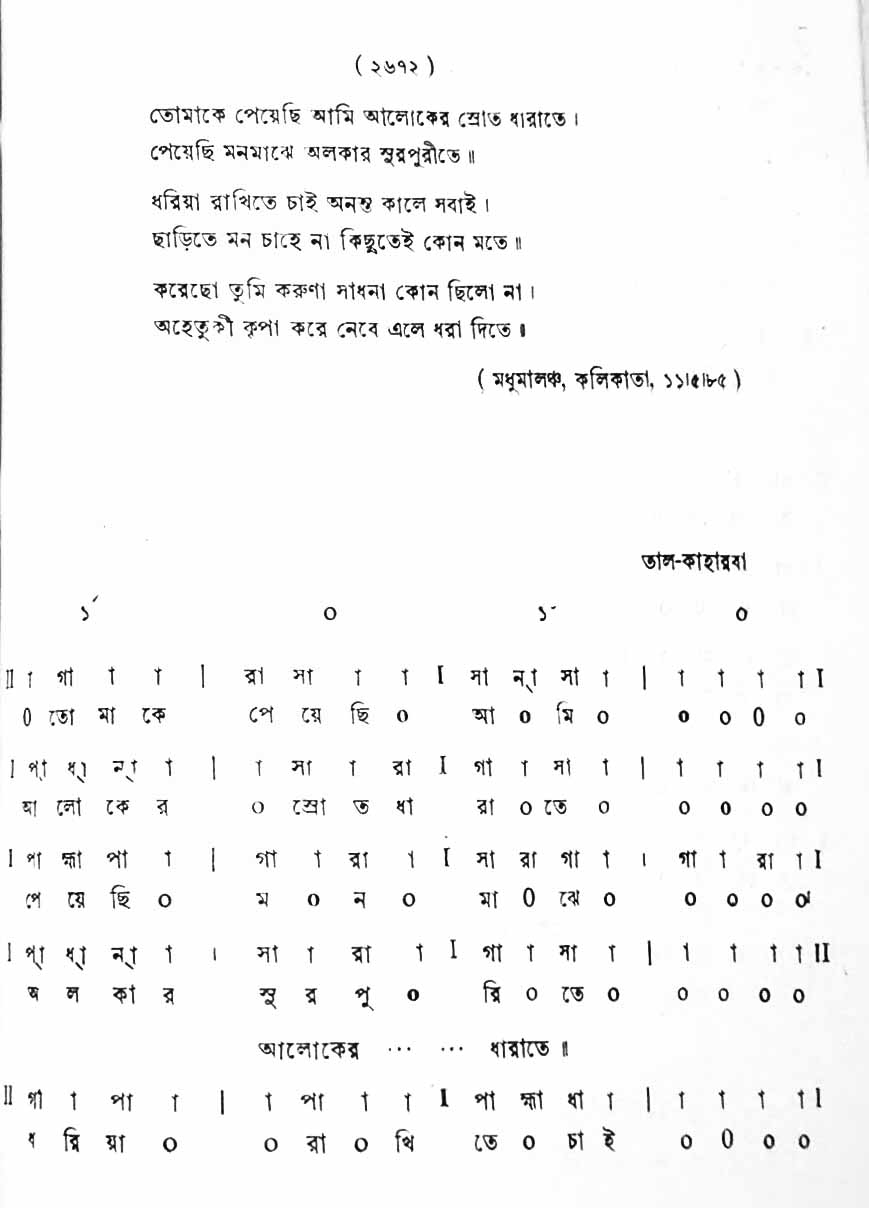 ( ২৬৭২ )
তোমাকে পেয়েছি আমি আলোকের স্রোত ধারাতে ।
পেয়েছি মনমাঝে অলকার সুরপুরীতে ॥
ধরিয়া রাখিতে চাই অনন্ত কালে সবাই ।
ছাড়িতে মন চাহে না কিছুতেই কোন মতে ॥
করেছো তুমি করুণা সাধনা কোন ছিলো না ।
অহেতুকী কৃপা করে নেবে এলে ধরা দিতে ॥
( মধুমালঞ্চ, কলিকাতা, ১১।৫।৮৫ )
তাল-কাহারবা
১´ ০ ১´ ০
II া গা া া | রা সা া া I সা ন্‌া সা া | া া া া I
০ তো মা কে পে য়ে ছি ০ আ ০ মি ০ ০ ০ ০ ০
I প্‌া ধ্‌া ন্‌া া | া সা া রা I গা া সা া | া া া া I
আ লো কে র ০ স্রো ত ধা রা ০ তে ০ ০ ০ ০ ০
I পা হ্মা পা া | গা া রা া I সা রা গা া । গা া রা া I
পে য়ে ছি ০ ম ০ ন ০ মা ০ ঝে ০ ০ ০ ০ ০
I প্‌া ধ্‌া ন্‌া া । সা া রা া I গা া সা া | া া া া II
অ ল কা র সু র পু ০ রি ০ তে ০ ০ ০ ০ ০
আলোকের ... ... ধারাতে ॥
II গা া পা া | া পা া া I পা হ্মা ধা া | া া া া I
ধ রি য়া ০ ০ রা ০ খি তে ০ চা ই ০ ০ ০ ০